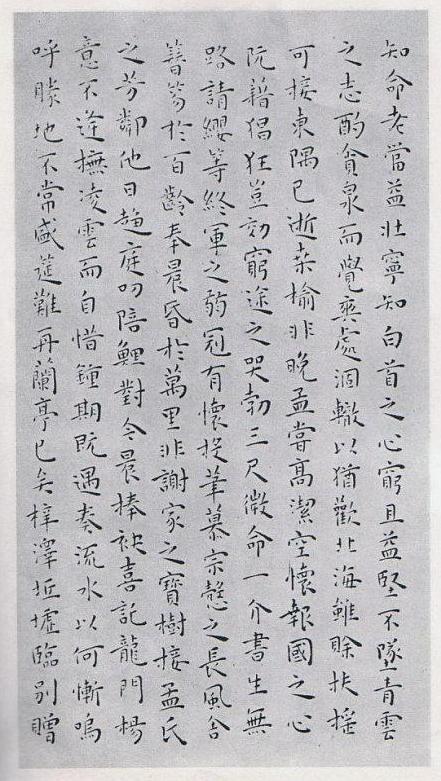 知命老當益壯寧知白首之心窮且益堅不墜青雲
之志酌貪泉而覺爽處涸轍以猶歡北海雖賒扶搖
可接東隅已逝桑榆非晚孟嘗高潔空懷報國之心
阮藉猖狂豈効窮途之哭勃三尺微命一介書生無
路請纓等終軍之弱冠有懷投筆慕宗愨之長風舍
簪笏於百齡奉晨昏於萬里非謝家之寶樹接孟氏
之芳鄰他日趨庭叨陪鯉對今晨捧袂喜託龍門楊
意不逢撫凌雲而自惜鍾期既遇奏流水以何慚嗚
呼勝地不常盛筵難再蘭亭已矣梓澤坵墟臨別贈